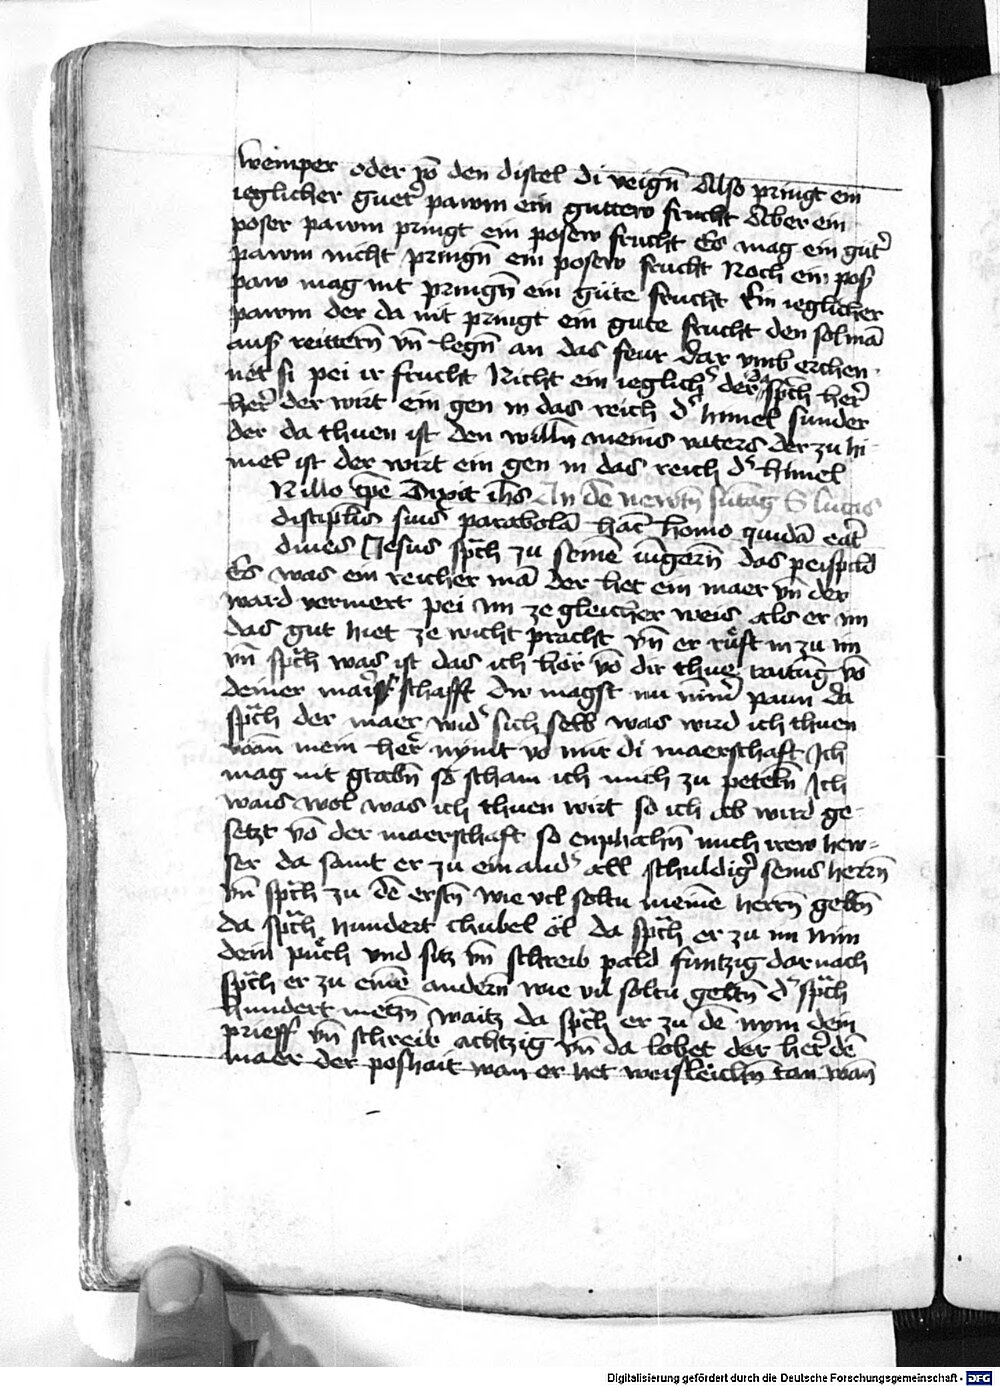 weinper oder vo den distel di veign Also pringt ein
ieglicher guet pawm ein guttew frucht Aber ein
poser pawm pringt ein posew frucht Es mag ein gut
pawm nicht pringn ein posew frucht Noch ein pos
paw mag nit pringn ein güte frucht Ein ieglicher
pawm der da nit pringt ein gute frucht den sol ma
aus reittern vn legn an das feur Dar vmb erchen
net si pei ir frucht Nicht ein ieglich der da spch her
her der wirt ein gen in das reich d himel sunder
der da thuen ist den willn meins vaters der zu hi
mel ist der wirt ein gen in das reich d himel
N illo tpe Dixit ihs An de newtn suntag S lucas
disciplis suis parabola hac homo quida erat
diues Jesus spch zu seine iungern das peispild
Es was ein reicher ma der het ein maer vn der
ward vermert pei im ze gleicher weis als er im
das gut hiet ze nicht pracht vn er rufft in zu im
vn spch was ist das ich hör vo dir thue raitung vo
deiner maerschafft Du magst nu nimer paun da
spch der maer wid sich selb was wird ich thuen
wan mein her nymt vo mir di maerschaft Ich
mag nit grabn so scham ich mich zu peteln Ich
wais wol was ich thuen wirt so ich ab wird ge
setzt vo der maerschaft so enphachn mich irew hew=
ser da samt er zu einand all schuldiger seins herrn
vn spch zu de erstn wie vil soltu meine herrn geltn
da spch hundert chubel öl da spch er zu im nim
dein püch vnd sitz vn schreib pald funtzig darnach
spch er zu eine andern wie vil soltu geltn d spch
hundert metzn waitz da spch er zu de nym dein
prieff vn schreib achtzig vn da lobet der her de
maer der poshait wan er het weisleichn tan wan
Digitalisierung gefördert durch die Deutsche Forschungsgemeinschaft - DFG